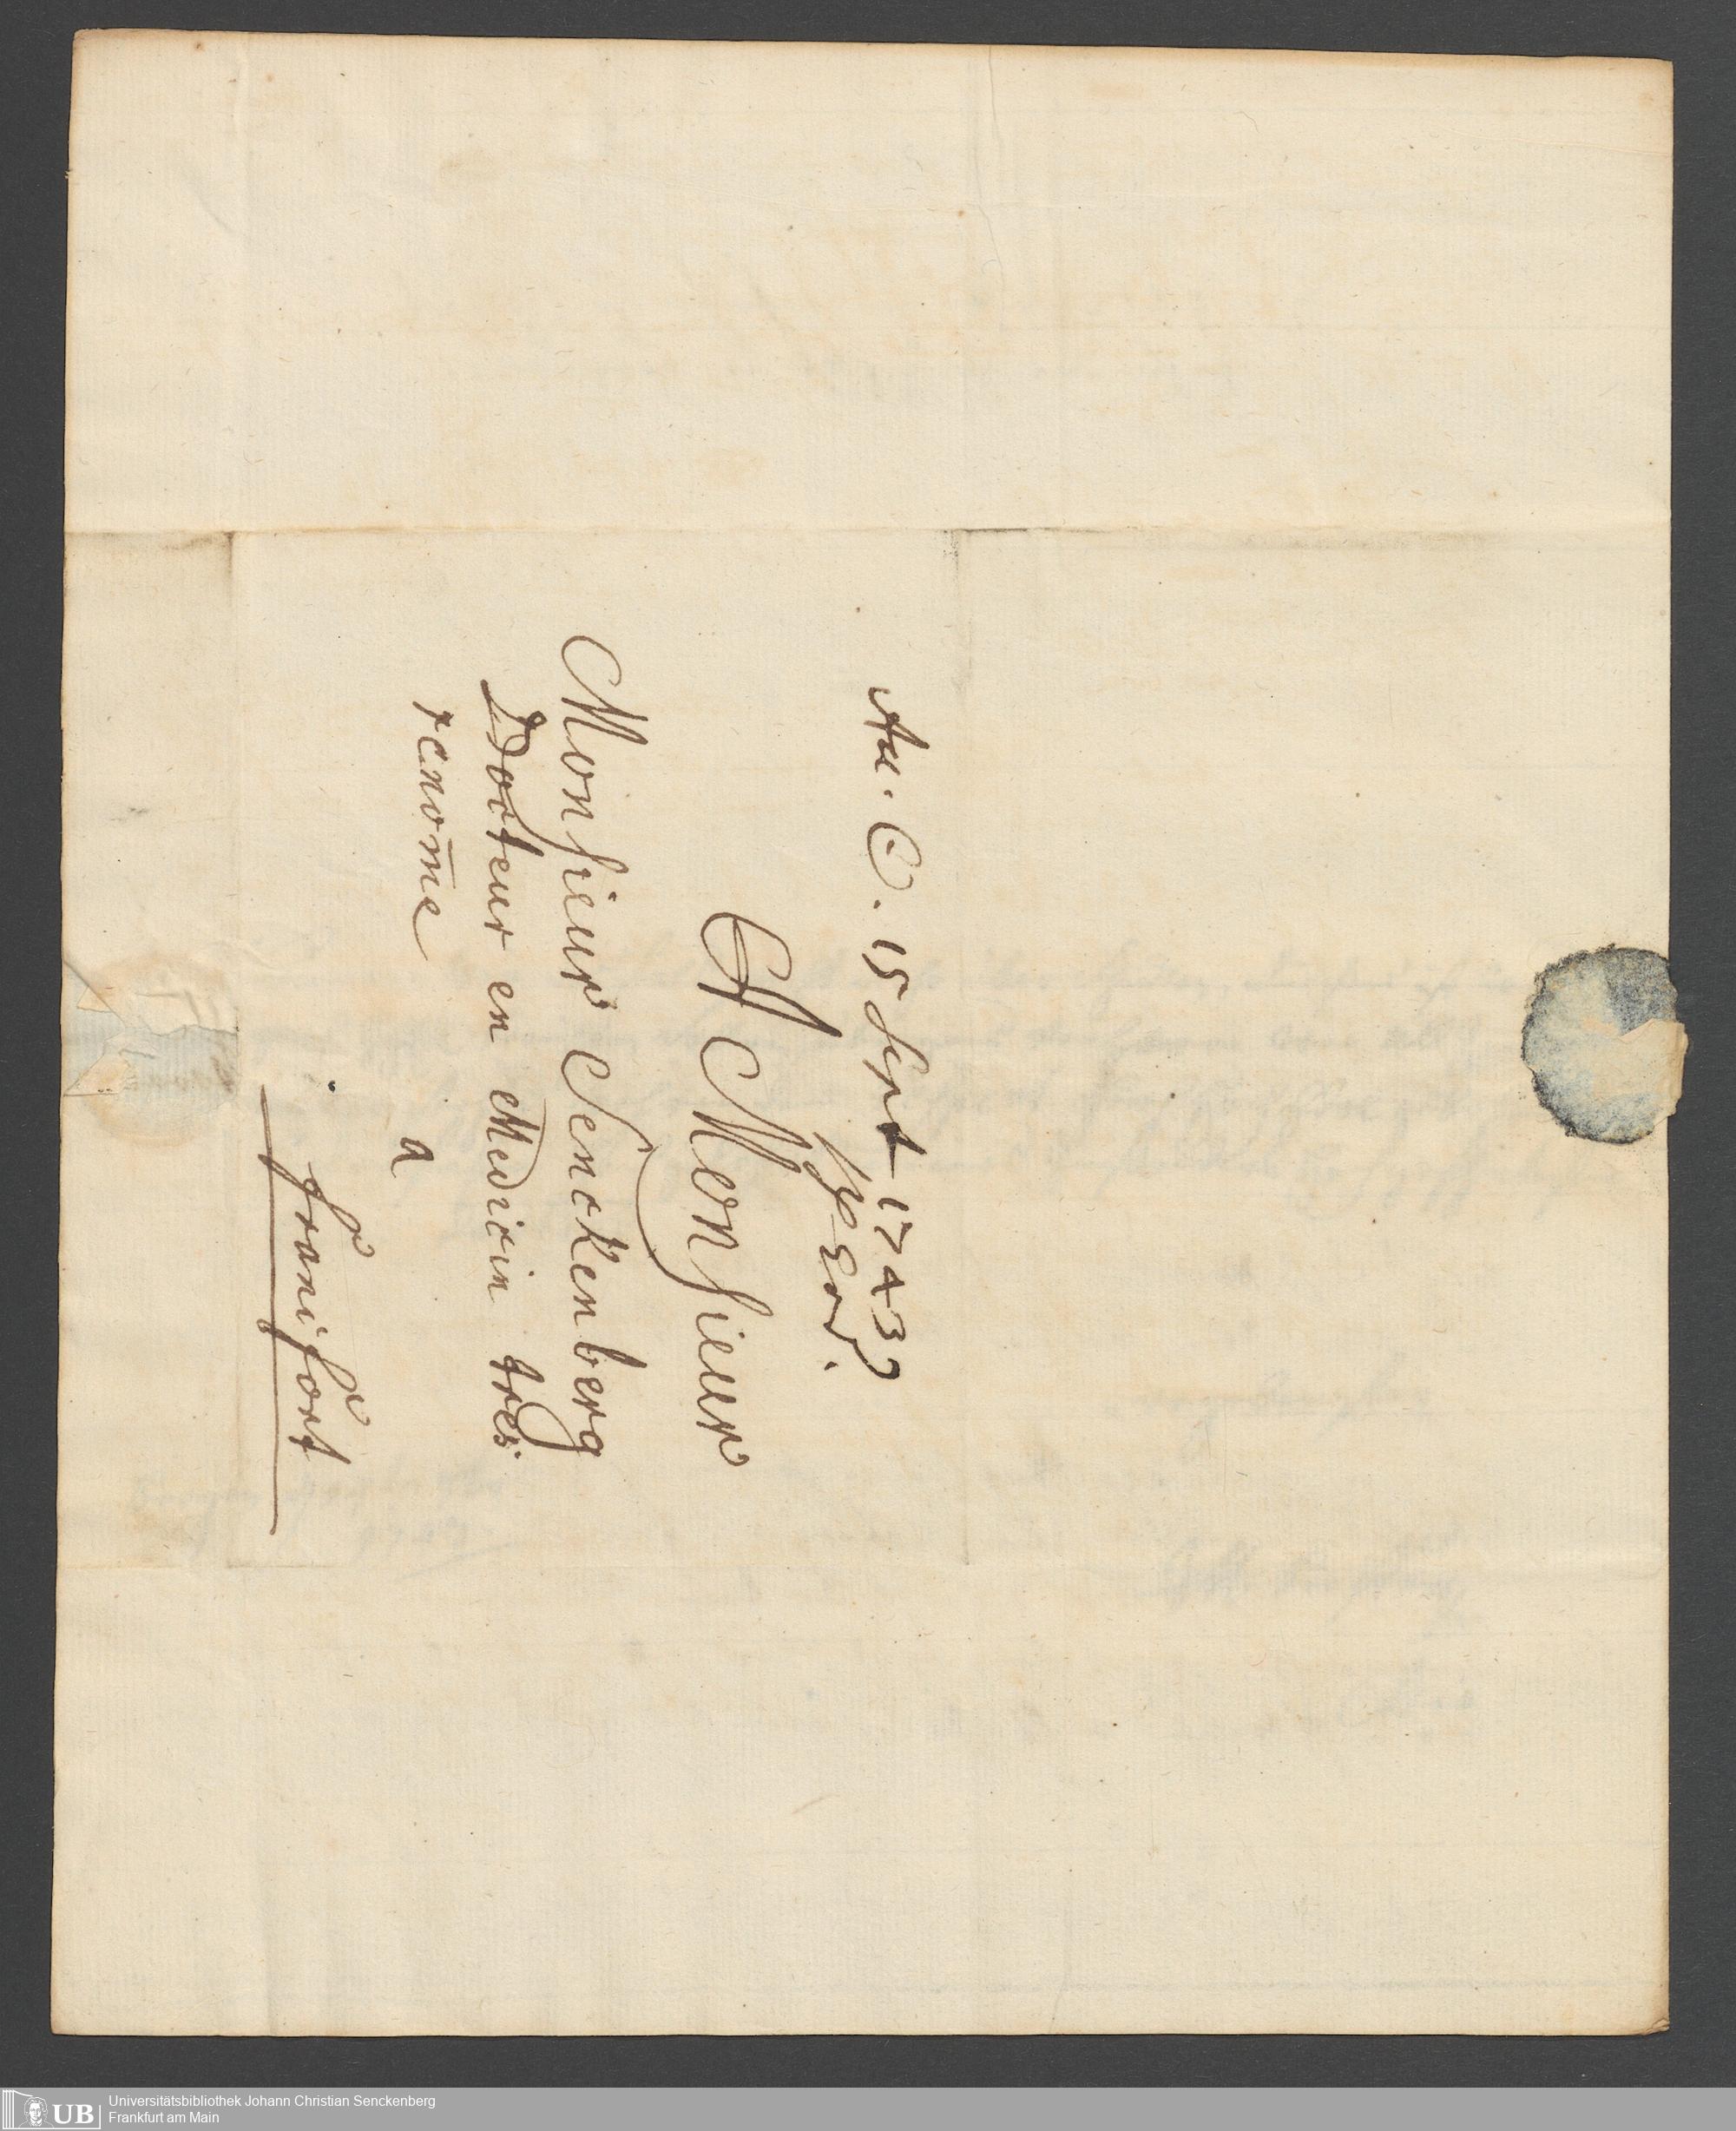 Acc. ☉. 15 Sept 1743
Eod.
A Monsieur
Monsieur Senckenberg
Docteur en Medicin tres
renom̅e
a
franckfort
UB
Universitätsbibliothek Johann Christian Senckenberg
Frankfurt am Main